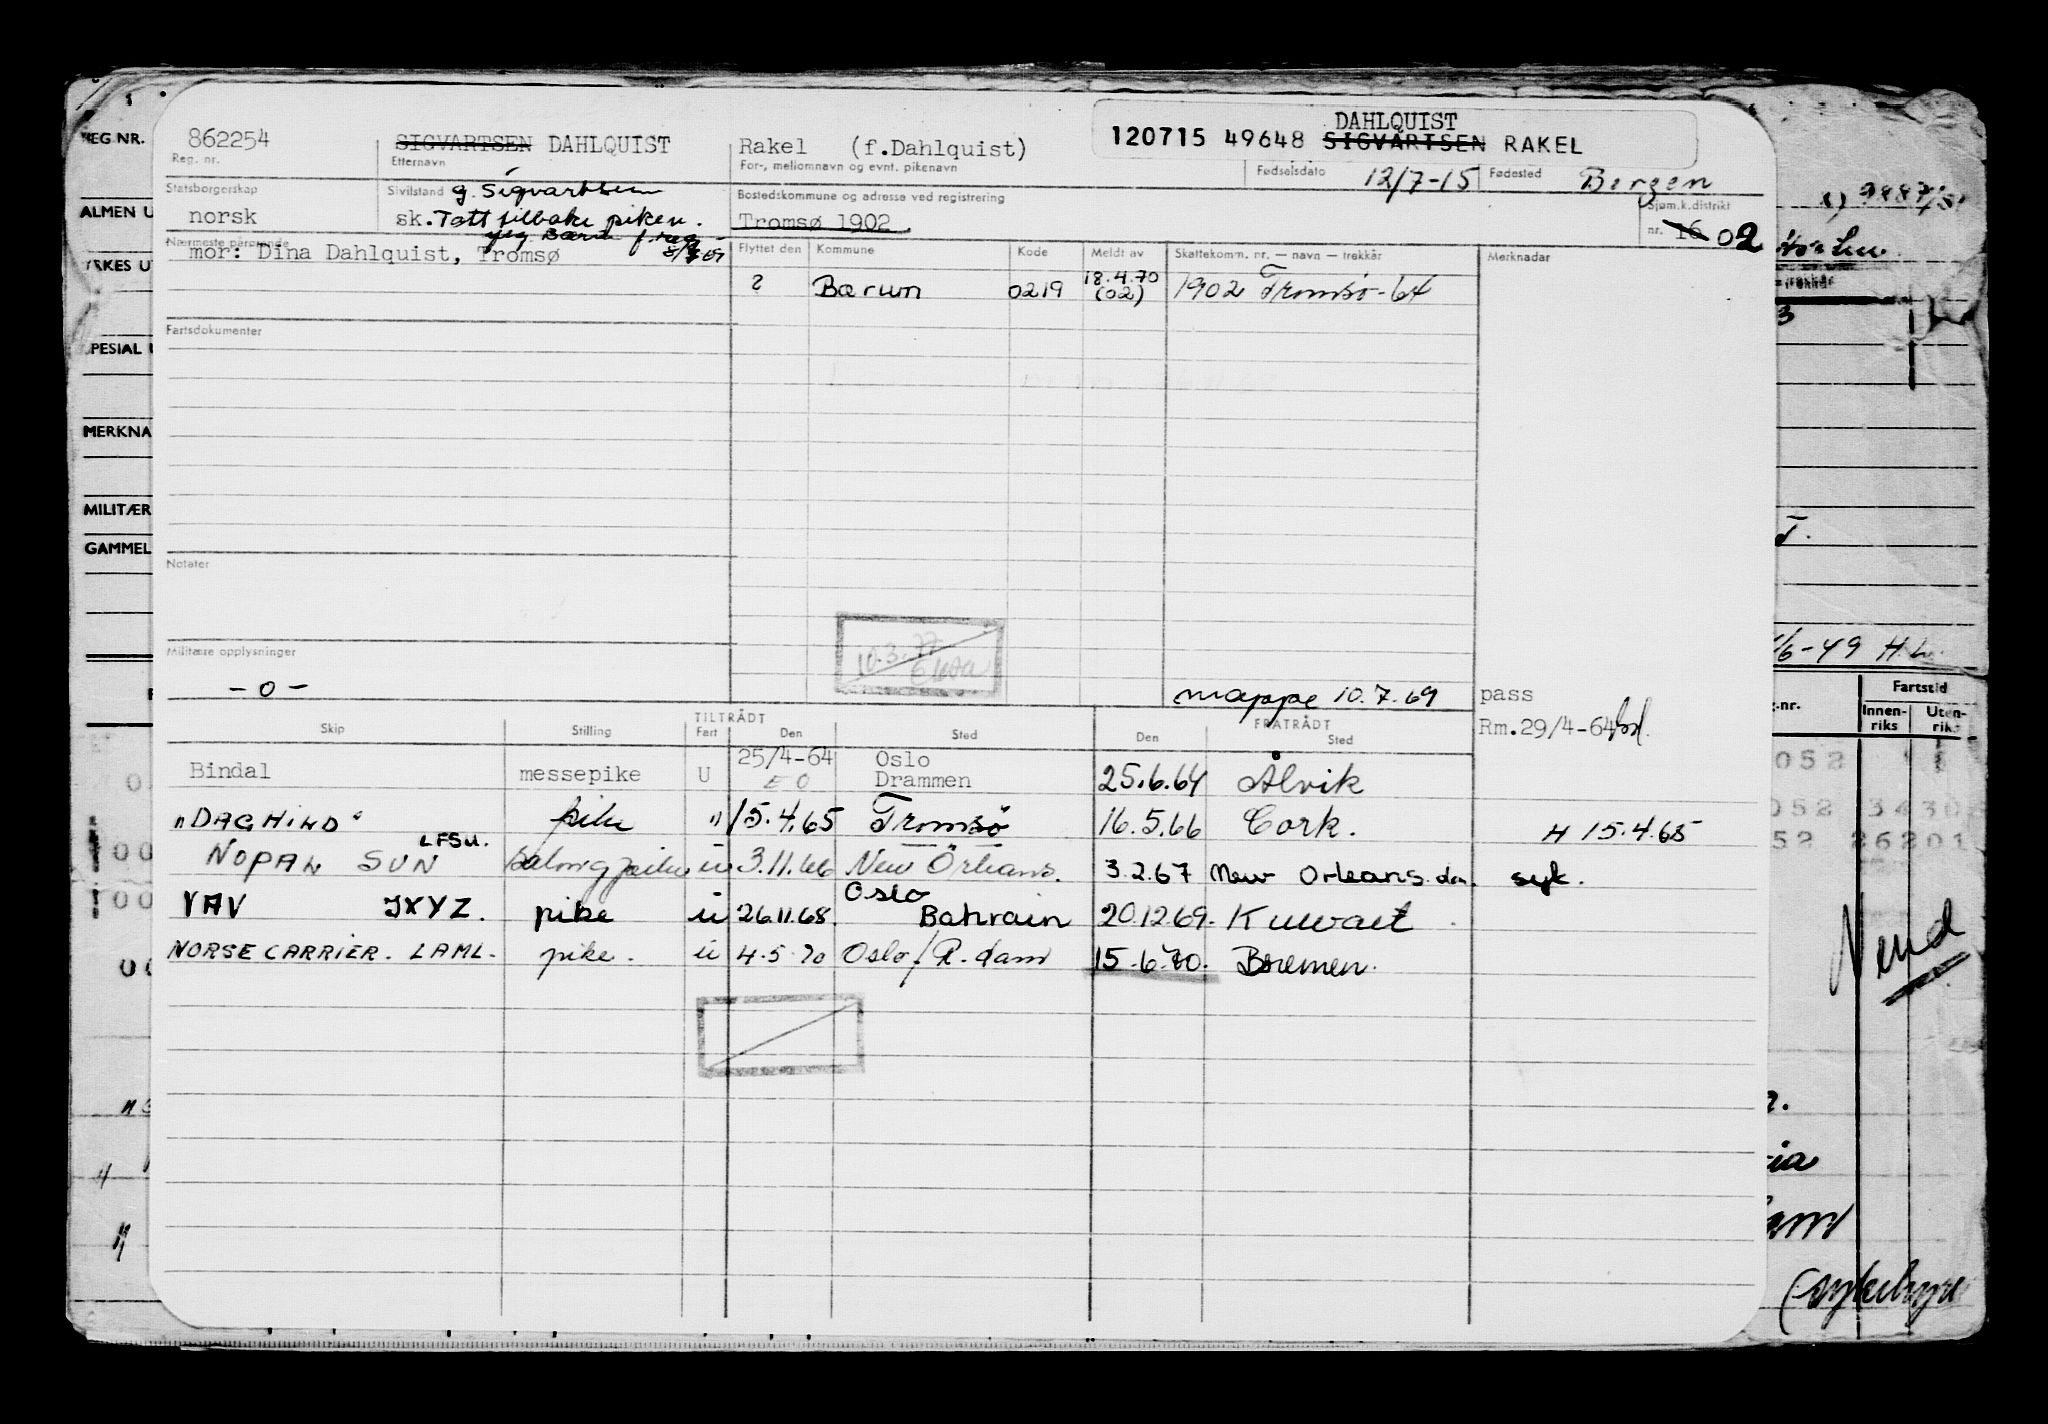 DAHLQUIST
862254 SIGVARTSEN DAHLQUIST Rakel (f.Dahlquist) 120715 49648 SIGVARTSEN RAKEL
REG NR. Reg. nr. Etternavn For-, mellomnavn og evnt. pikenavn Fødselsdato 12/7-15 Fødested Bergen
Statsborgerskap Sivilstand g. Sigvartsen Bostedskommune og adresse ved registrering
norsk sk. Tatt tilbake piken. Tromsø 1902 Sjøm.k.distrikt
nr. 16 02
Nærmeste pårørende
mor: Dina Dahlquist, Tromsø
Flyttet den Kommune Kode Meldt av Skattekomm. nr. — navn — trekkår Merknader
? Bærum 0219 18.4.70 (02) 1902 Tromsø-64
Fartsdokumenter
Notater
10.3.77
Militære opplysninger
-0-
mappe 10.7.69 pass
Rm.29/4-64
TILTRÅDT FRATRÅDT
Skip Stilling Fart Den Sted Den Sted
Bindal messepike U 25/4-64 Oslo Drammen 25.6.64 Ålvik
EO
"DAGHILD" pike " 15.4.65 Tromsø 16.5.66 Cork. H 15.4.65
NOPAL SUN LFSU. salongpike u 3.11.66 New Orleans. 3.2.67 New Orleans. syk.
VAV JXYZ. pike u 26.11.68. Oslo Bahrain 20.12.69. Kuwait
NORSE CARRIER. LAML. pike. u 4.5.70 Oslo/R.dam 15.6.70. Bremen.
ALMEN U
YRKES U
PESIAL U
MERKNA
MILITÆR
GAMMEL
/6-49 H.L.
Fartstid
Innen-riks Uten-riks
052
052 3430
52 26201